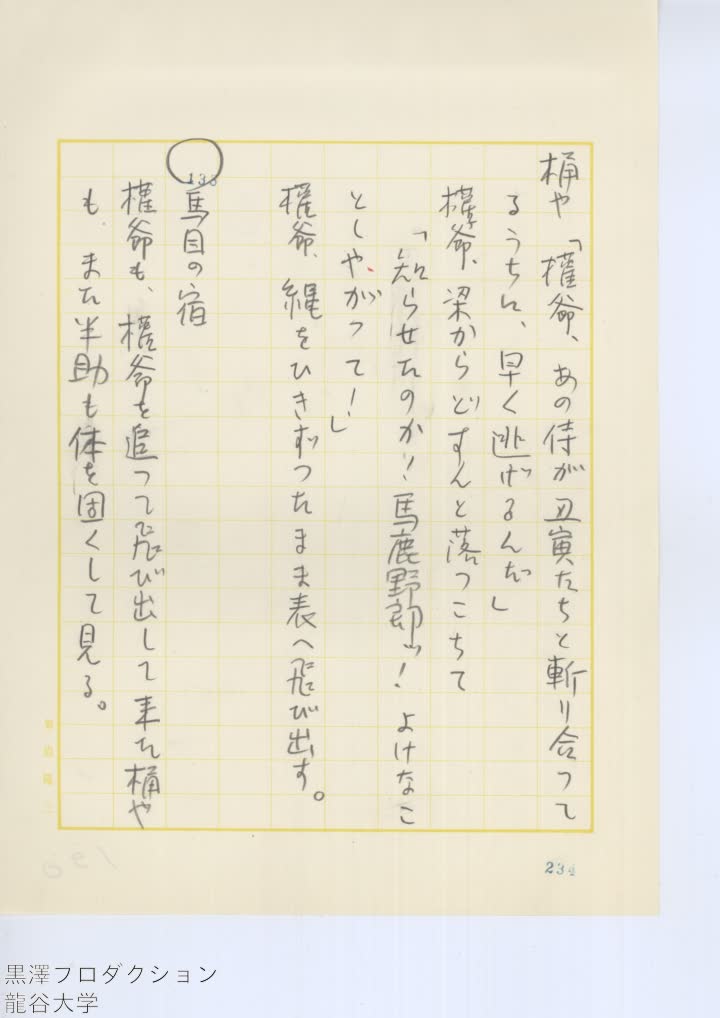 桶や「権爺、あの侍が丑寅たちと斬り合つて
るうちに、早く逃げるんだ」
権爺、梁からどすんと落つこちて
「知らせたのか！馬鹿野郎ッ！よけなこ
としやがつて！」
権爺、縄をひきずつたまま表へ飛び出す。
133
馬目の宿
権爺も、権爺を追つて飛び出して来た桶や
も、また半助も体を固くして見る。
234
黒澤プロダクション
龍谷大学